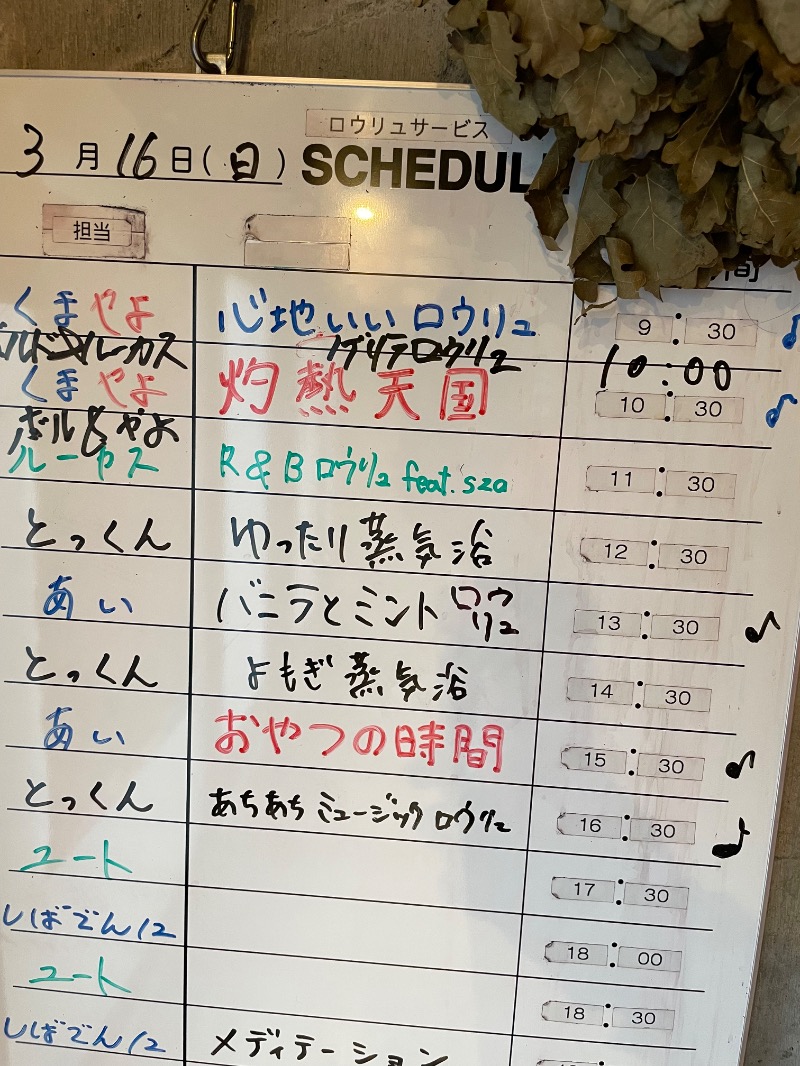 ロウリュサービス
3月16日(日) SCHEDUL
担当
間
くまやよ 心地いいロウリュ 9:30
ルーカス ロウリュ 10:00
くまやよ 灼熱天国 10:30
ボル&やよ
ルーカス R&Bロウリュ feat.sza 11:30
とっくん ゆったり蒸気浴 12:30
あい バニラとミントロウリュ 13:30
とっくん よもぎ蒸気浴 14:30
あい おやつの時間 15:30
とっくん あちあちミュージックロウリュ 16:30
ユート 17:30
しばでん12 18:00
ユート 18:30
しばでん12 メディテーション